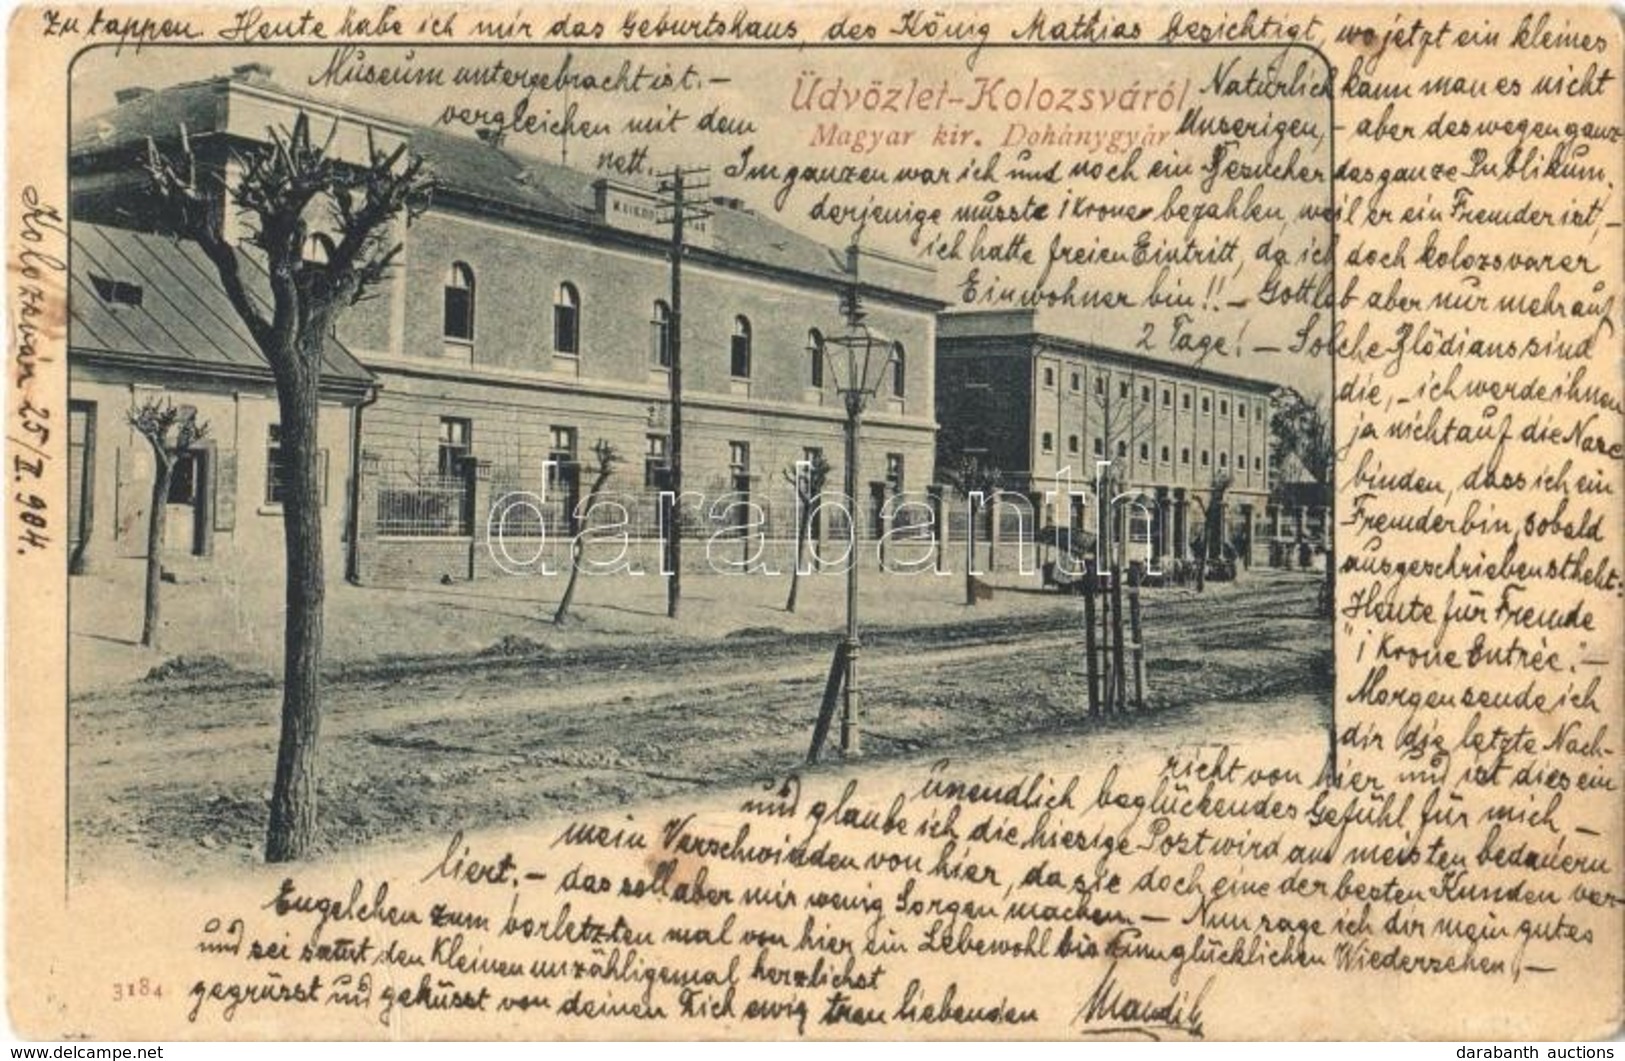 zu tappen. Heute habe ich mir das Geburtshaus, des König Mathias besichtigt, wo jetzt ein kleines
Museum untergebracht ist. –
Natürlich kann man es nicht
vergleichen mit dem
Unserigen, – aber deswegen ganz
nett.
Im ganzen war ich und noch ein Besucher das ganze Publikum,
derjenige musste 1 Krone bezahlen, weil er ein Fremder ist, –
ich hatte freien Eintritt, da ich doch Kolozsvarer
Einwohner bin!! – Gottlob aber nur mehr auf
2 Tage! – Solche Blödians sind
die, – ich werde ihnen
ja nicht auf die Nase
binden, dass ich ein
Fremder bin, sobald
ausgeschrieben steht:
Heute für Fremde
"1 Krone Entrée." –
Morgen sende ich
dir die letzte Nach-
richt von hier und ist dies ein
unendlich beglückendes Gefühl für mich, –
und glaube ich die hiesige Post wird am meisten bedauern
mein Verschwinden von hier, da sie doch eine der besten Kunden ver-
liert. – das soll aber mir wenig Sorgen machen. – Nun sage ich dir mein gutes
Engelchen zum vorletzten mal von hier ein Lebewohl bis zum glücklichen Wiedersehen, –
und sei samt den Kleinen unzähligemal herzlichst
gegrüsst und geküsst von deinen Dich ewig treu liebenden
Kolozsvár 25/II. 904.
Üdvözlet-Kolozsváról
Magyar kir. Dohánygyár
3184
darabanth
darabanth auctions
https://www.delcampe.net